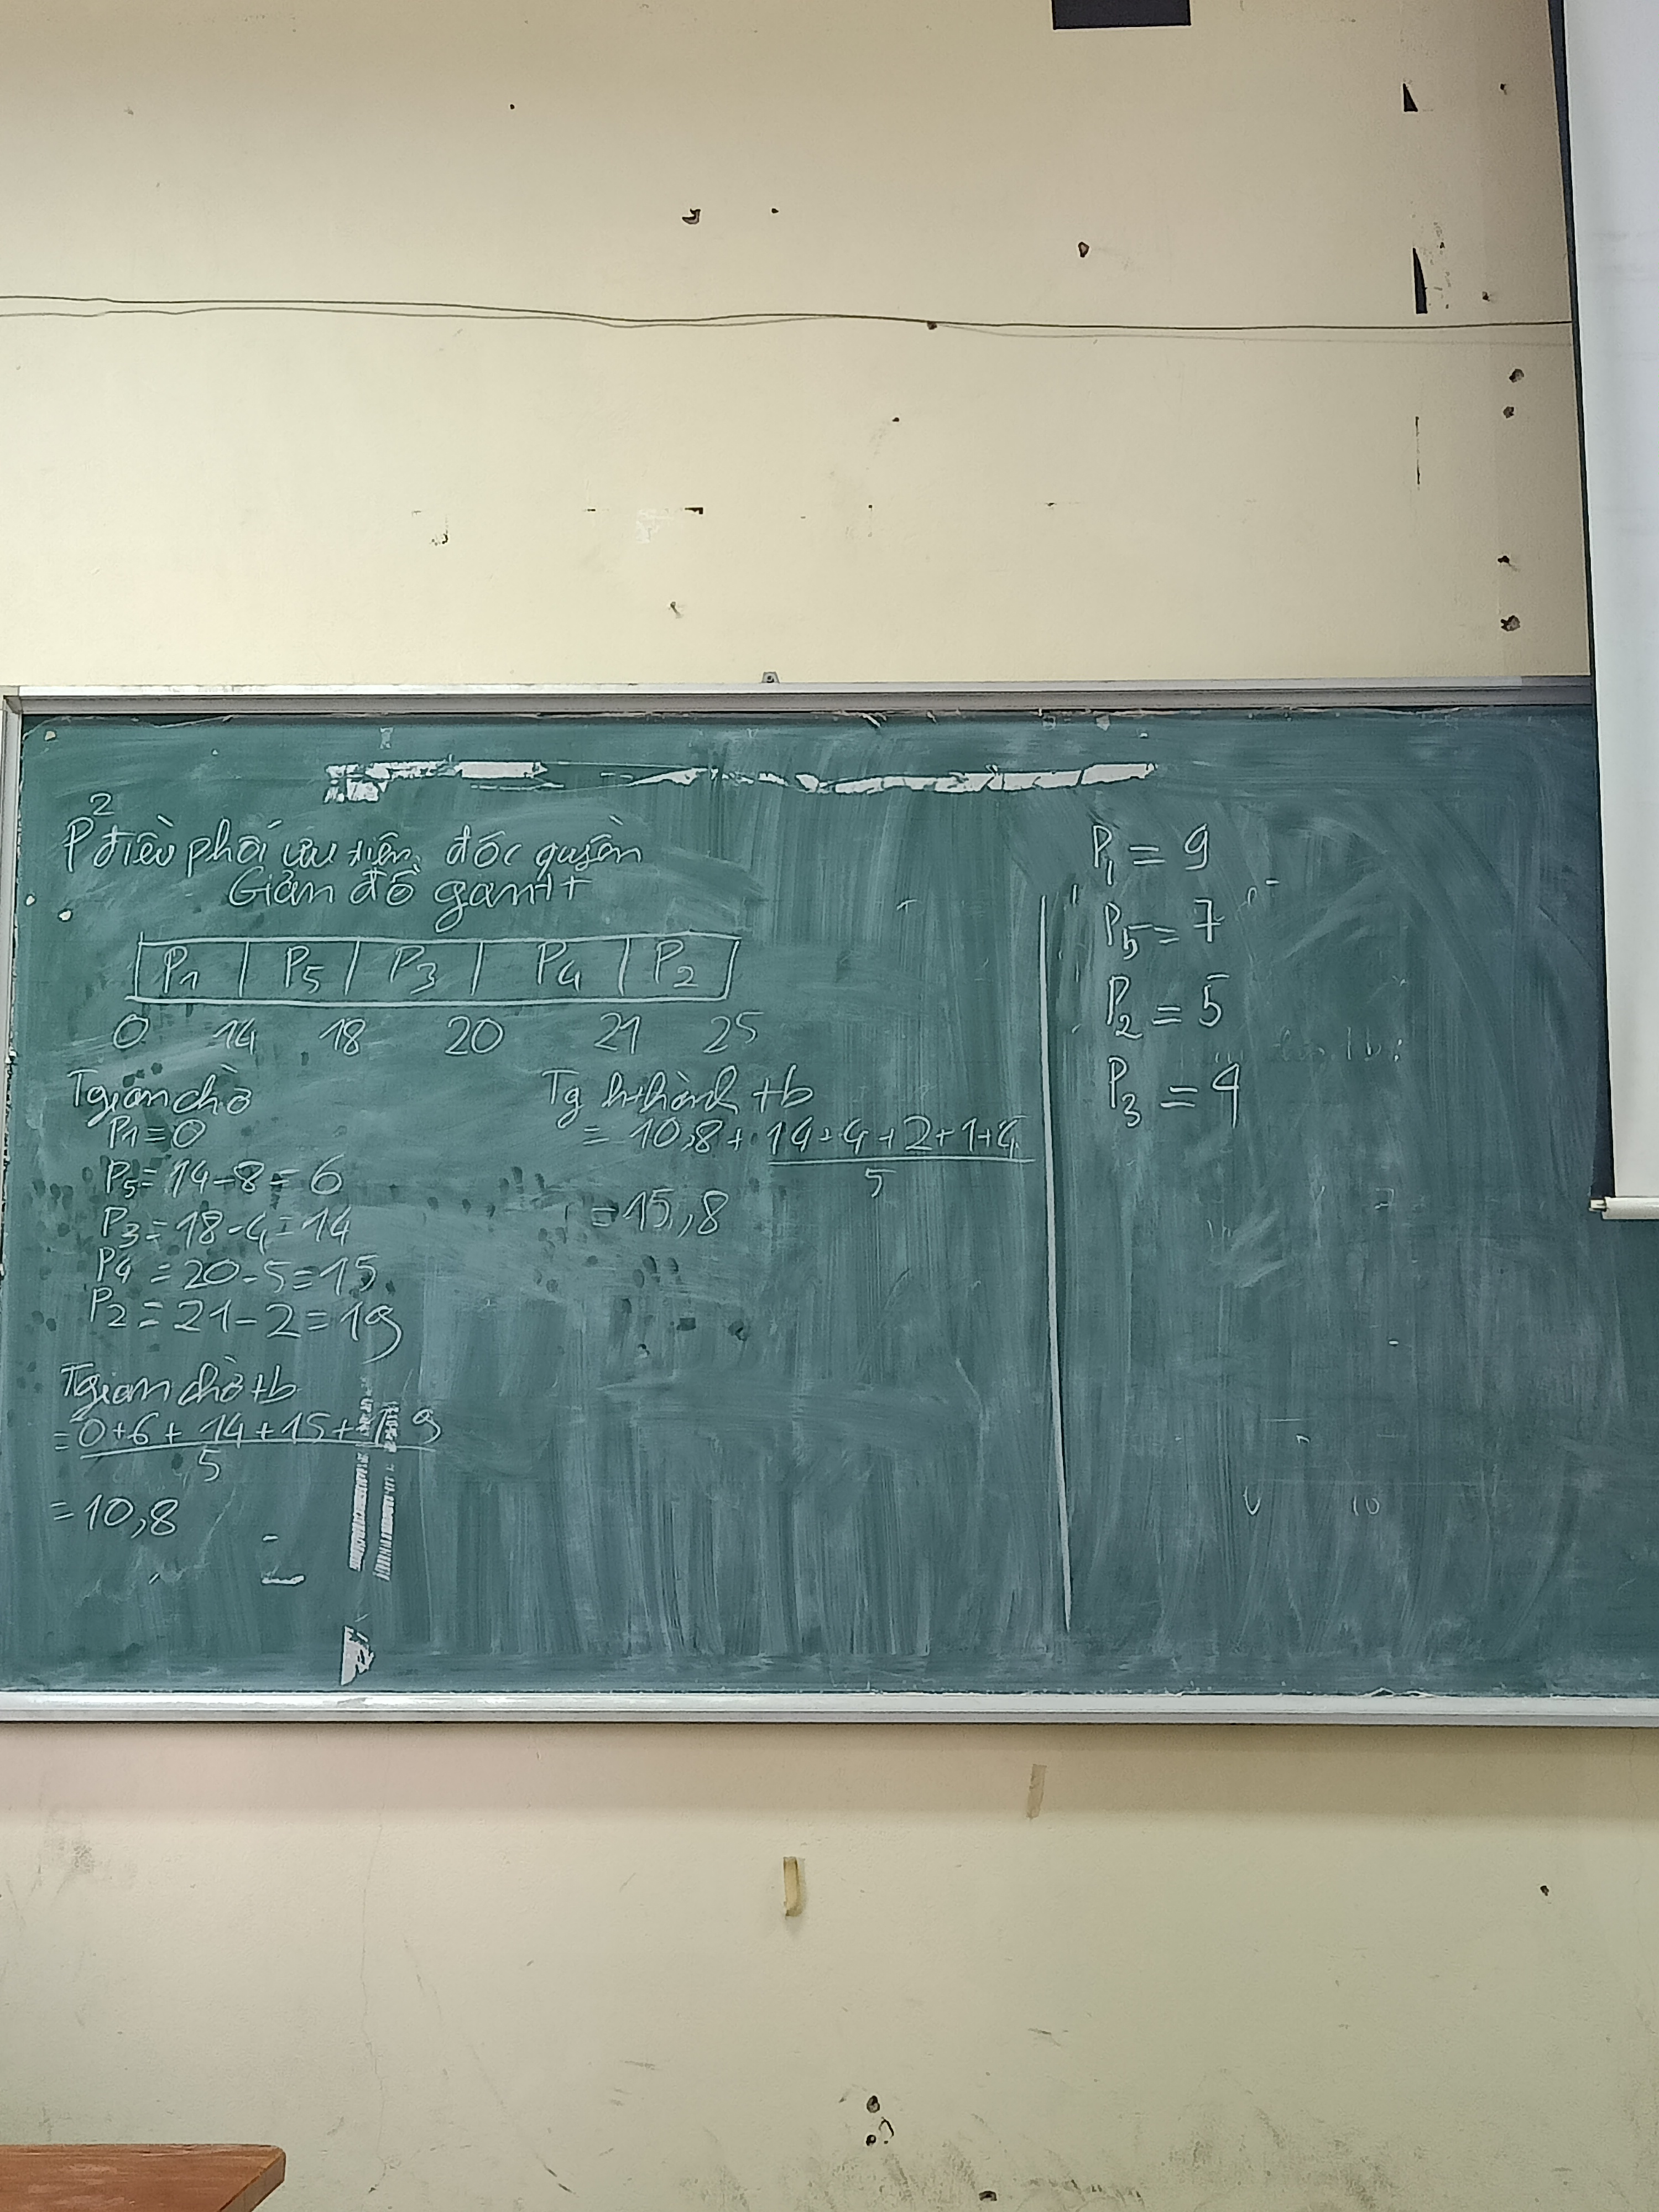 P² điều phối ưu tiên, độc quyền
Giản đồ gantt
P1 P5 P3 P4 P2
0 14 18 20 21 25
Tgian chờ
P1 = 0
P5 = 14 - 8 = 6
P3 = 18 - 4 = 14
P4 = 20 - 5 = 15
P2 = 21 - 2 = 19
Tgian chờ tb
= 0+6+14+15+19
5
= 10,8
Tg h+hành tb
= 10,8 + 14+4+2+1+4
5
= 15,8
P1 = 9
P5 = 7
P2 = 5
P3 = 4